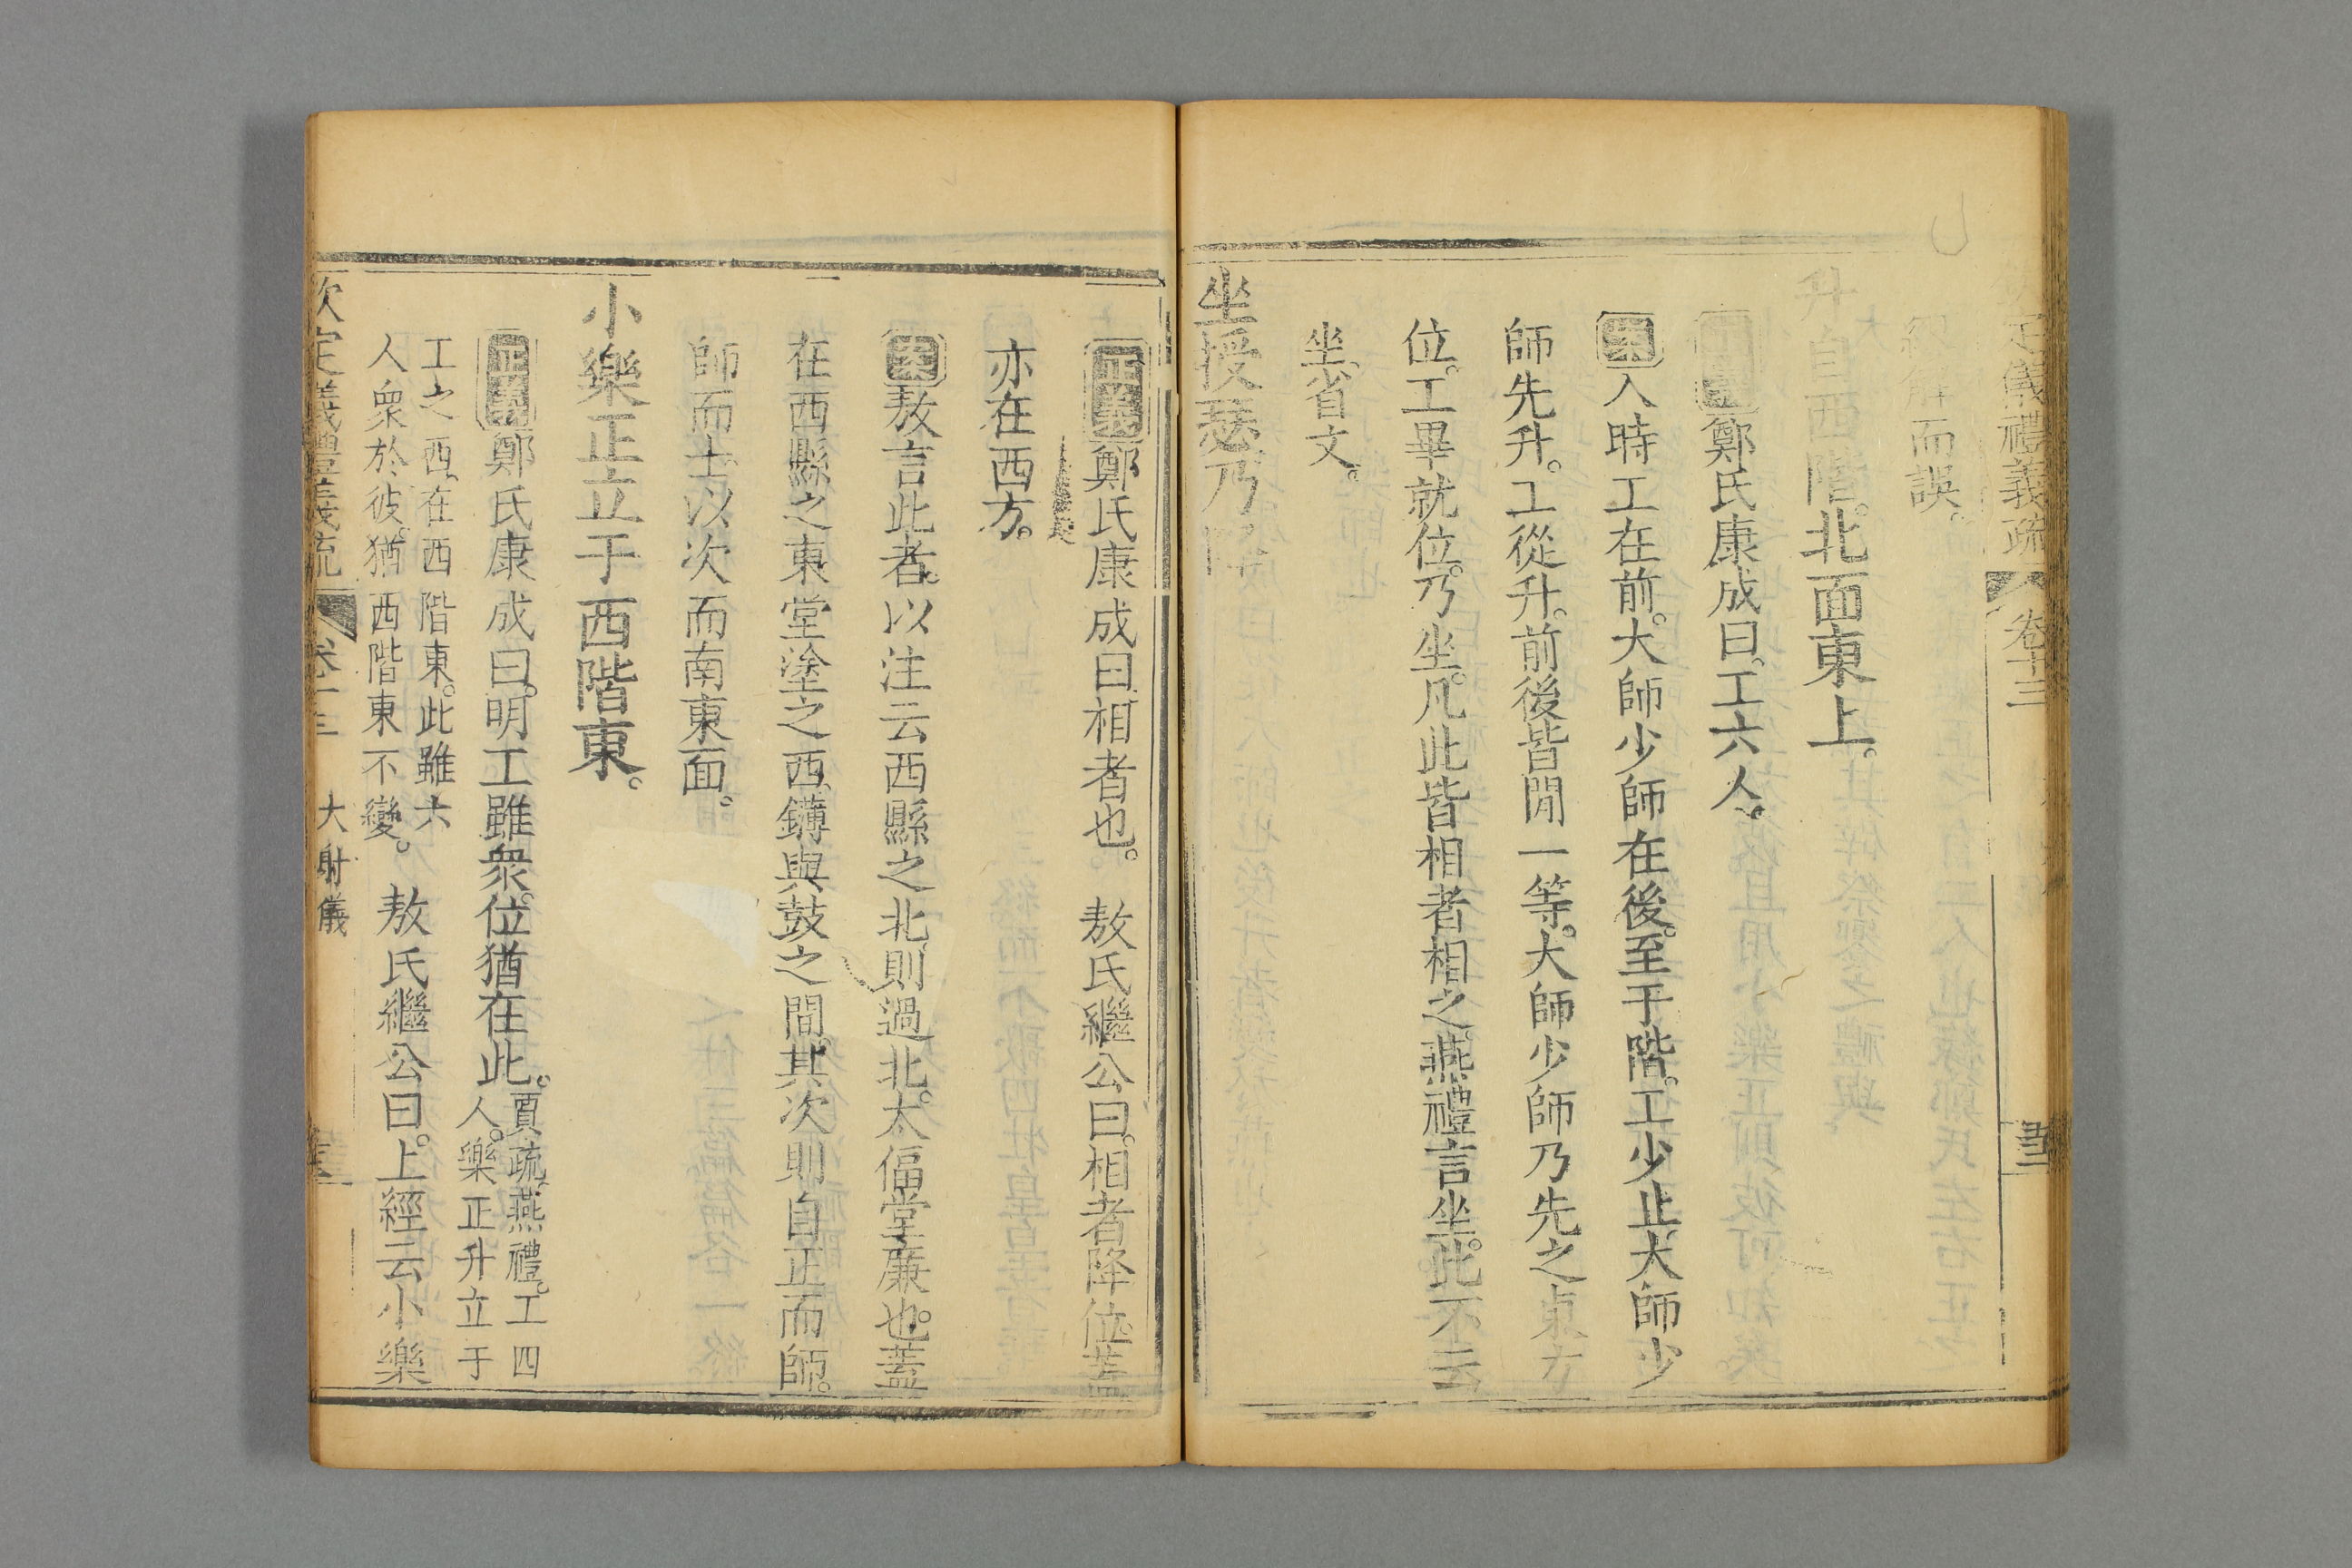 定儀禮義疏 卷十三
解而誤。
升自西階。北面東上。
鄭氏康成曰。工六人。
案入時工在前。大師少師在後。至于階。工少止。大師少
師先升。工從升。前後皆閒一等。大師少師乃先之東方
位。工畢就位。乃坐。凡此皆相者相之。燕禮言坐。此不云
坐。省文。
坐授瑟乃降
正義鄭氏康成曰。相者也。 敖氏繼公曰。相者降位蓋
亦在西方。
案敖言此者。以注云西縣之北。則過北。太偪堂廉也。蓋
在西縣之東。堂塗之西。鑮與鼓之間。其次則自正而師。
師而士。以次而南東面。
小樂正立于西階東。
正義鄭氏康成曰。明工雖衆。位猶在此。賈疏。燕禮。工四
人。樂正升立于
工之西。在西階東。此雖六
人衆於彼。猶西階東不變。 敖氏繼公曰。上經云小樂
欽定儀禮義疏 卷十三 大射儀